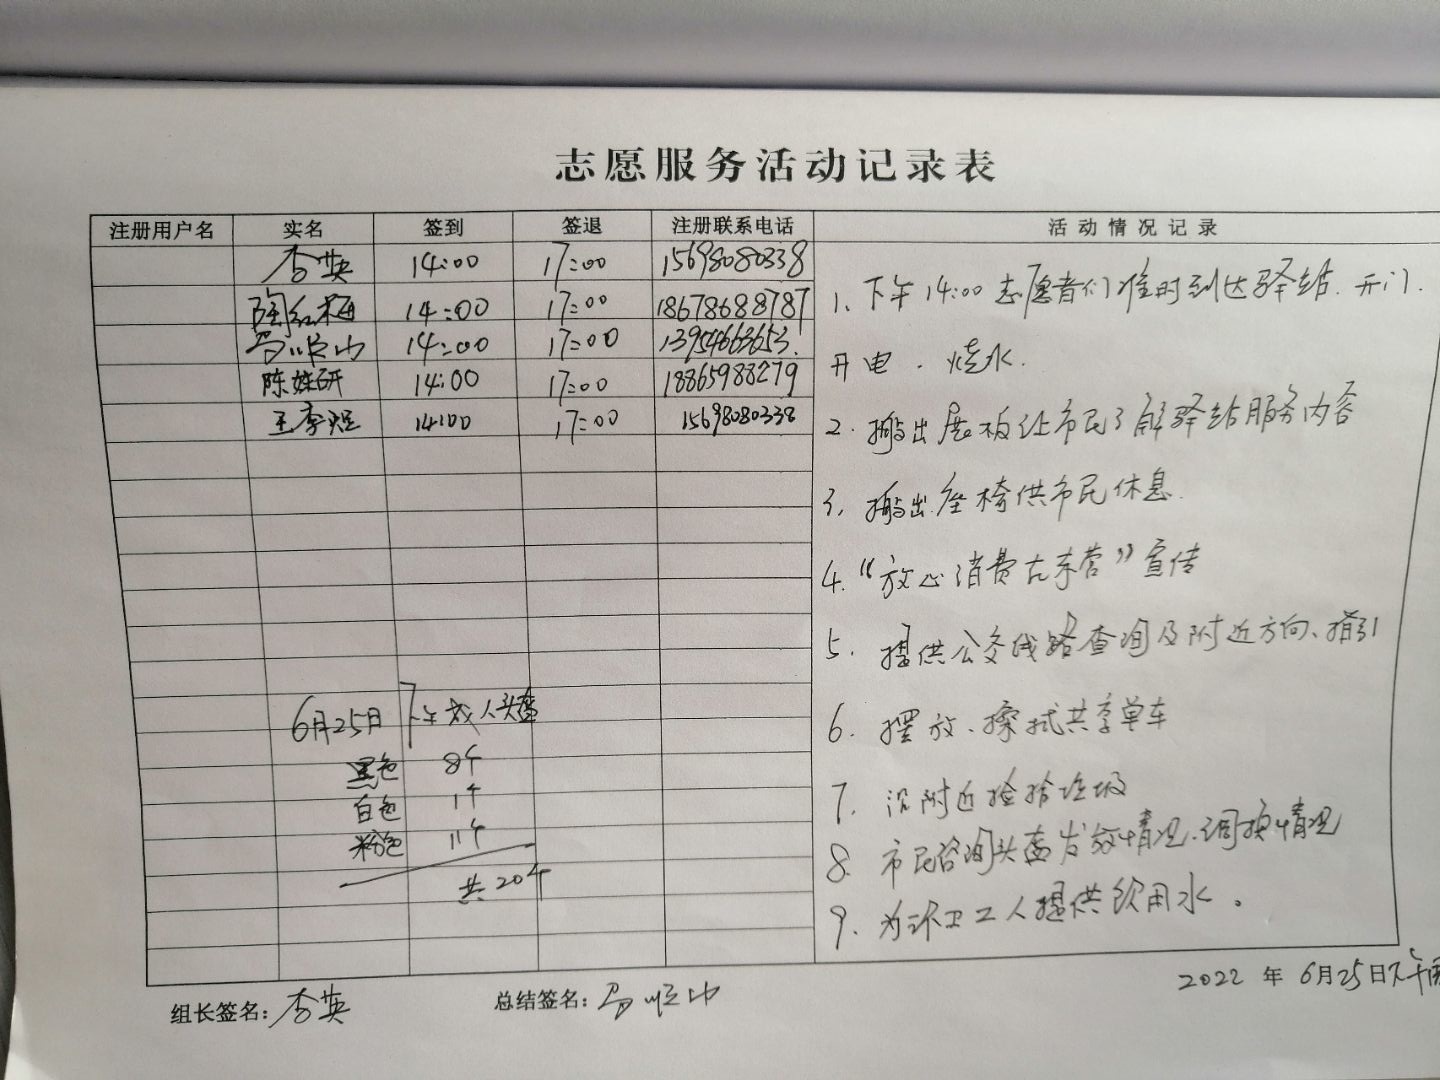 志愿服务活动记录表
注册用户名 实名 签到 签退 注册联系电话 活动情况记录
李英 14:00 17:00 15698080338
陶红梅 14:00 17:00 18678688787
14:00 17:00 13954663653
陈姝研 14:00 17:00 18865988279
王李煜 14:00 17:00 15698080338
1. 下午14:00志愿者们准时到达驿站.开门.
开电.烧水.
2. 搬出展板让市民了解驿站服务内容
3. 搬出座椅供市民休息.
4.“放心消费在东营”宣传
5. 提供公交线路查询及附近方向、指引
6. 摆放、擦拭共享单车
7. 沿附近捡拾垃圾
8. 市民咨询头盔发放情况.调换情况
9. 为环卫工人提供饮用水。
6月25日 下午 成人头盔
黑色 8个
白色 1个
粉色 11个
共20个
组长签名:李英 总结签名:
2022年6月25日下午